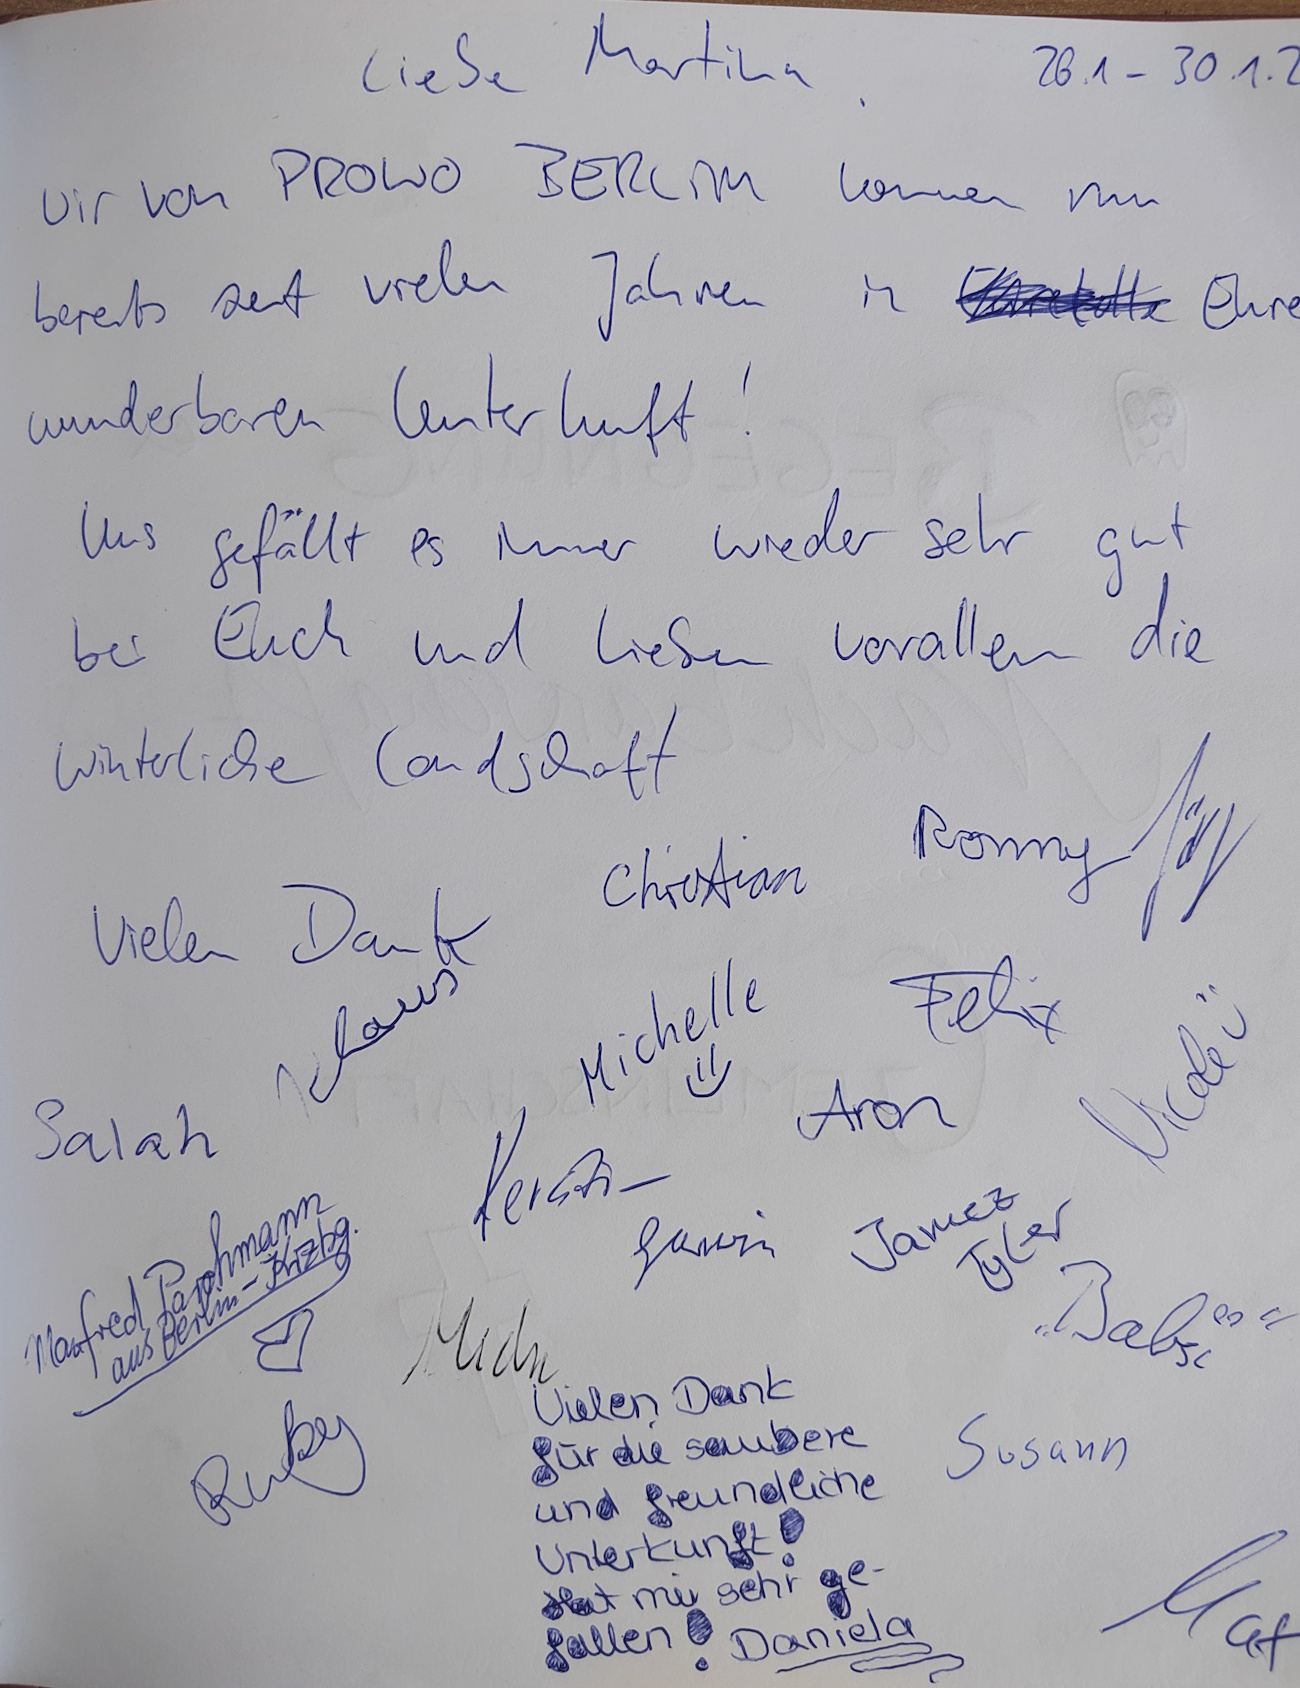 Liebe Martina,
26.1 - 30.1.2
wir von PROWO BERLIN kommen nun
bereits seit vielen Jahren in Eure
wunderbaren Unterkunft!
Uns gefällt es immer wieder sehr gut
bei Euch und lieben vorallem die
winterliche Landschaft
Vielen Dank
Christian
Ronny
Klaus
Michelle
Felix
Nicole
Salah
Aron
Kerstin
Manfred Parchmann
aus Berlin-Krzbg.
Jamez
Tyler
"Babsi"
Ruby
Vielen Dank
für die saubere
und freundliche
Unterkunft!
Hat mir sehr ge-
fallen! Daniela
Susann